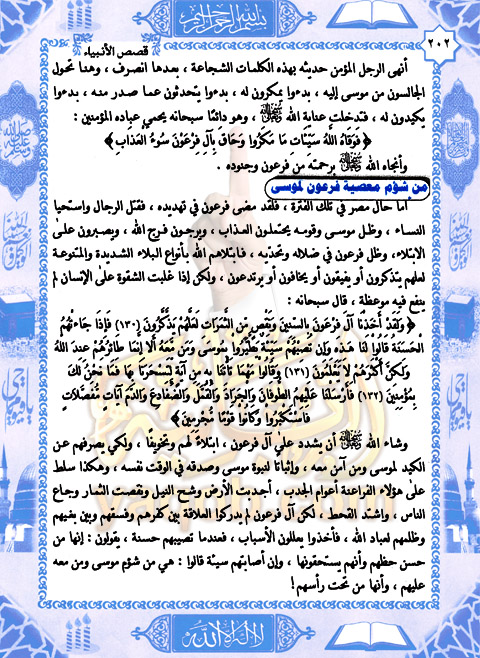 بسم الله الرحمن الرحيم
٢٠٢
قصص الأنبياء
أنهى الرجل المؤمن حديثه بهذه الكلمات الشجاعة ، بعدها انصرف ، وهنا تحول
الجالسون من موسى إليه ، بدءوا يمكرون له ، بدءوا يتحدثون عما صدر منه ، بدءوا
يكيدون له ، فتدخلت عناية الله ، وهو دائمًا سبحانه يحمي عباده المؤمنين :
﴿ فَوَقَاهُ اللَّهُ سَيِّئَاتِ مَا مَكَرُوا وَحَاقَ بِآلِ فِرْعَوْنَ سُوءُ الْعَذَابِ ﴾
وأنجاه الله برحمته من فرعون وجنوده .
من شؤم معصية فرعون لموسى
أما حال مصر في تلك الفترة ، فلقد مضى فرعون في تهديده ، فقتل الرجال واستحيا
النساء ، وظل موسى وقومه يحتملون العذاب ، ويرجون فرج الله ، ويصبرون على
الابتلاء، وظل فرعون في ضلاله وتحديه ، فابتلاهم الله بأنواع البلاء الشديدة والمتنوعة
لعلهم يتذكرون أو يفيقون أو يخافون أو يرتدعون ، ولكن إذا غلبت الشقوة على الإنسان لم
ينفع فيه موعظة ، قال سبحانه :
﴿ وَلَقَدْ أَخَذْنَا آلَ فِرْعَوْنَ بِالسِّنِينَ وَنَقْصٍ مِّنَ الثَّمَرَاتِ لَعَلَّهُمْ يَذَّكَّرُونَ (١٣٠) فَإِذَا جَاءَتْهُمُ
الْحَسَنَةُ قَالُوا لَنَا هَذِهِ وَإِن تُصِبْهُمْ سَيِّئَةٌ يَطَّيَّرُوا بِمُوسَى وَمَن مَّعَهُ أَلَا إِنَّمَا طَائِرُهُمْ عِندَ اللَّهِ
وَلَكِنَّ أَكْثَرَهُمْ لَا يَعْلَمُونَ (١٣١) وَقَالُوا مَهْمَا تَأْتِنَا بِهِ مِنْ آيَةٍ لِّتَسْحَرَنَا بِهَا فَمَا نَحْنُ لَكَ
بِمُؤْمِنِينَ (١٣٢) فَأَرْسَلْنَا عَلَيْهِمُ الطُّوفَانَ وَالْجَرَادَ وَالْقُمَّلَ وَالضَّفَادِعَ وَالدَّمَ آيَاتٍ مُّفَصَّلَاتٍ
فَاسْتَكْبَرُوا وَكَانُوا قَوْمًا مُّجْرِمِينَ ﴾
وشاء الله أن يشدد على آل فرعون ، ابتلاءً لهم وتخويفًا ، ولكي يصرفهم عن
الكيد لموسى ومن آمن معه ، وإثباتًا لنبوة موسى وصدقه في الوقت نفسه ، وهكذا سلط
على هؤلاء الفراعنة أعوام الجدب ، أجدبت الأرض وشح النيل ونقصت الثمار وجاع
الناس ، واشتد القحط ، لكن آل فرعون لم يدركوا العلاقة بين كفرهم وفسقهم وبين بغيهم
وظلمهم لعباد الله ، فأخذوا يعللون الأسباب ، فعندما تصيبهم حسنة ، يقولون : إنها من
حسن حظهم وأنهم يستحقونها ، وإن أصابتهم سيئة قالوا : هي من شؤم موسى ومن معه
عليهم ، وأنها من تحت رأسهم!
لا إله إلا الله